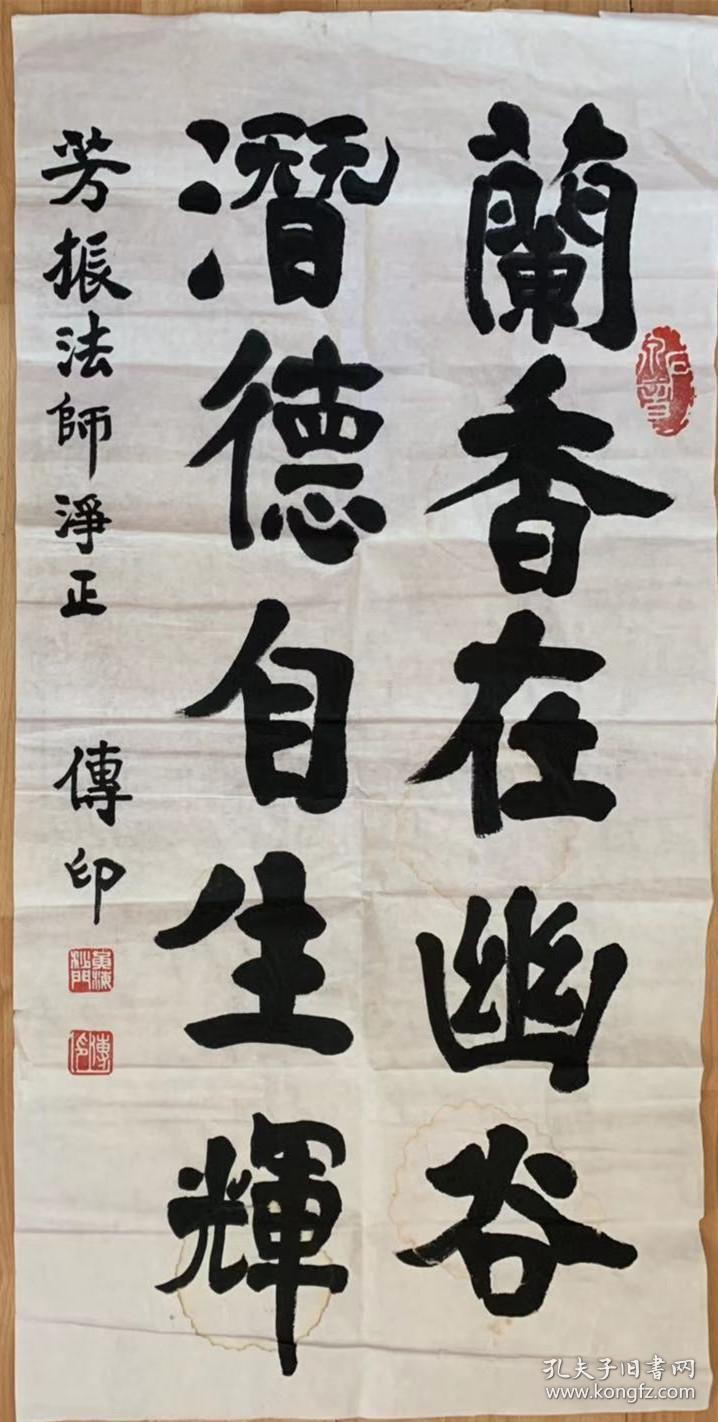 蘭香在幽谷
潛德自生輝
芳振法師淨正
傳印
黃梅沙門
傳印
孔夫子旧书网
www.kongfz.com